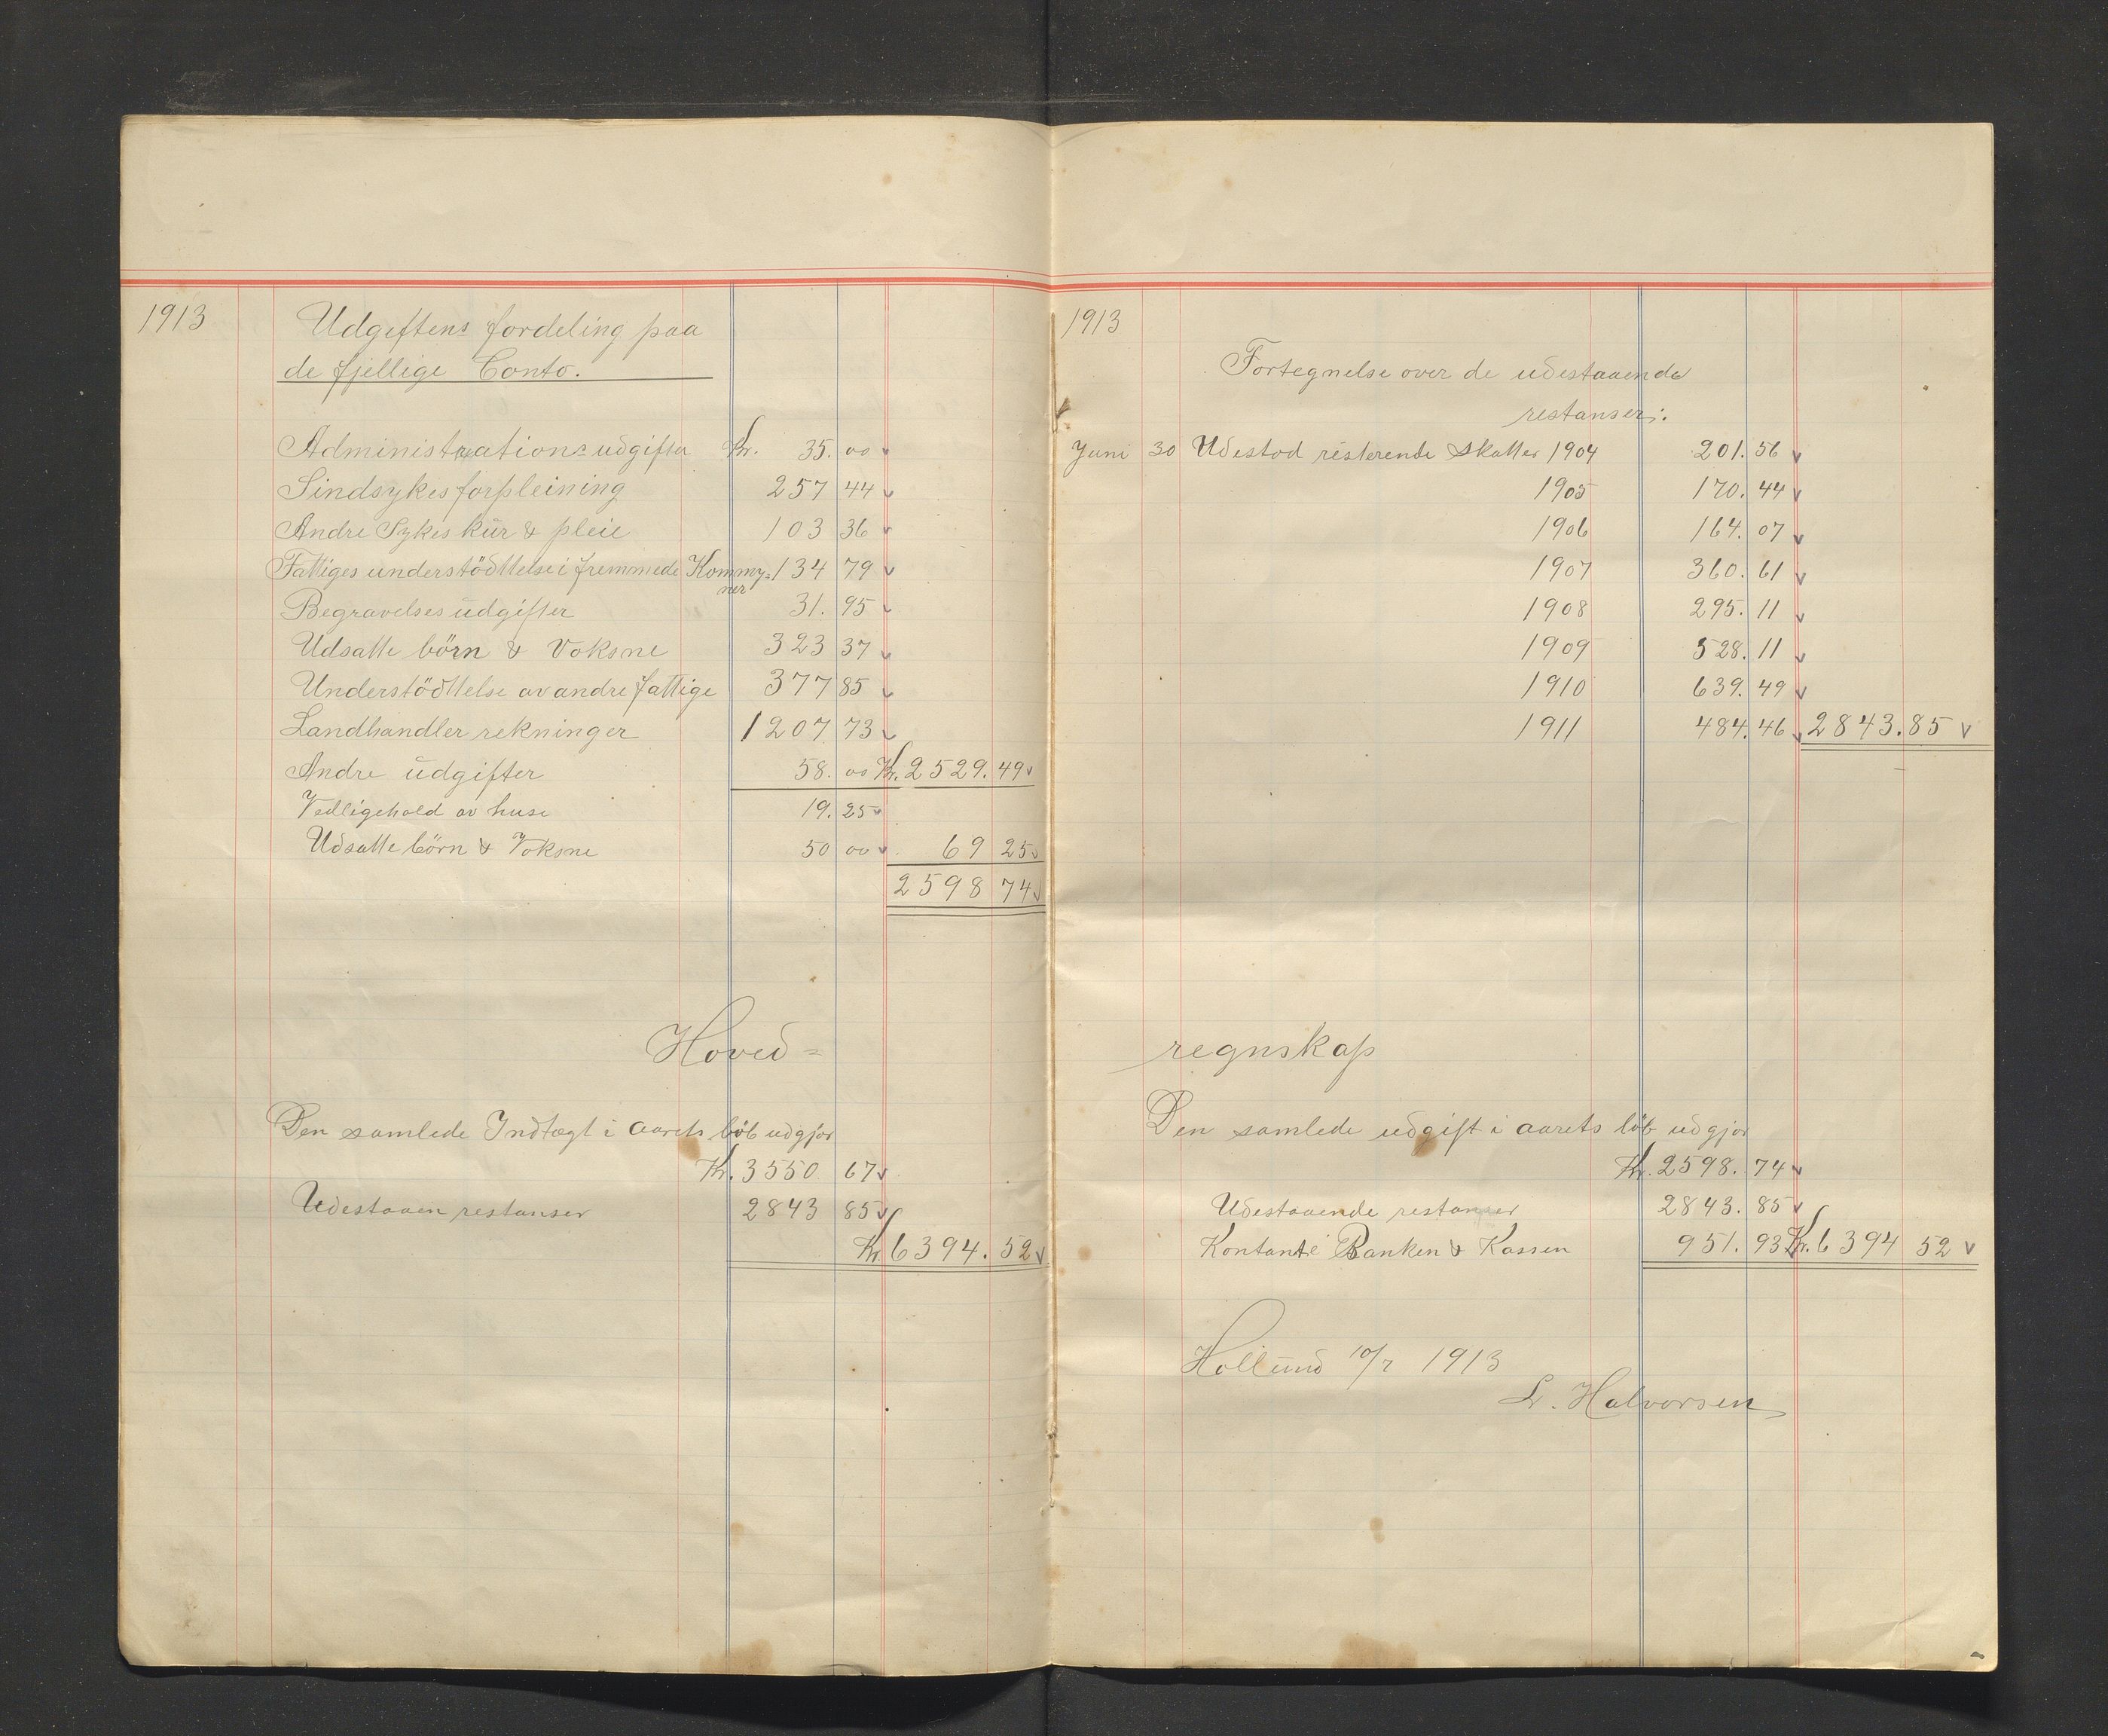 1913
Udgiftens fordeling paa
de fjellige Conto.
Administrations udgifter Kr. 35. 00
Sindsykes forpleining 257 44
Andre Sykes kur & pleie 103 36
Fattiges understödttelse i fremmede Kommy= 134 79
ner
Begravelses udgifter 31. 95
Udsatte börn & Voksne 323 37
Understödttelse av andre fattige 377 85
Landhandler rekninger 1207 73
Andre udgifter 58. 00 Kr. 2529. 49
Vedligehold av huse 19. 25
Udsatte börn & Voksne 50 00 69 25
2598 74
Hoved=
Den samlede Indtægt i aarets löb udgjör
Kr. 3550 67
Udestaaen restanser 2843 85
Kr. 6394. 52
1913
Fortegnelse over de udestaaende
restanser:
Juni 30 Udestod resterende Skatter 1904 201. 56
1905 170. 44
1906 164. 07
1907 360. 61
1908 295. 11
1909 528. 11
1910 639. 49
1911 484. 46 2843. 85
regnskap
Den samlede udgift i aarets löb udgjör
Kr. 2598. 74
Udestaaende restanser 2843. 85
Kontant i Banken & Kassen 951. 93 Kr. 6394 52
Hollund 10/7 1913
L. Halvorsen